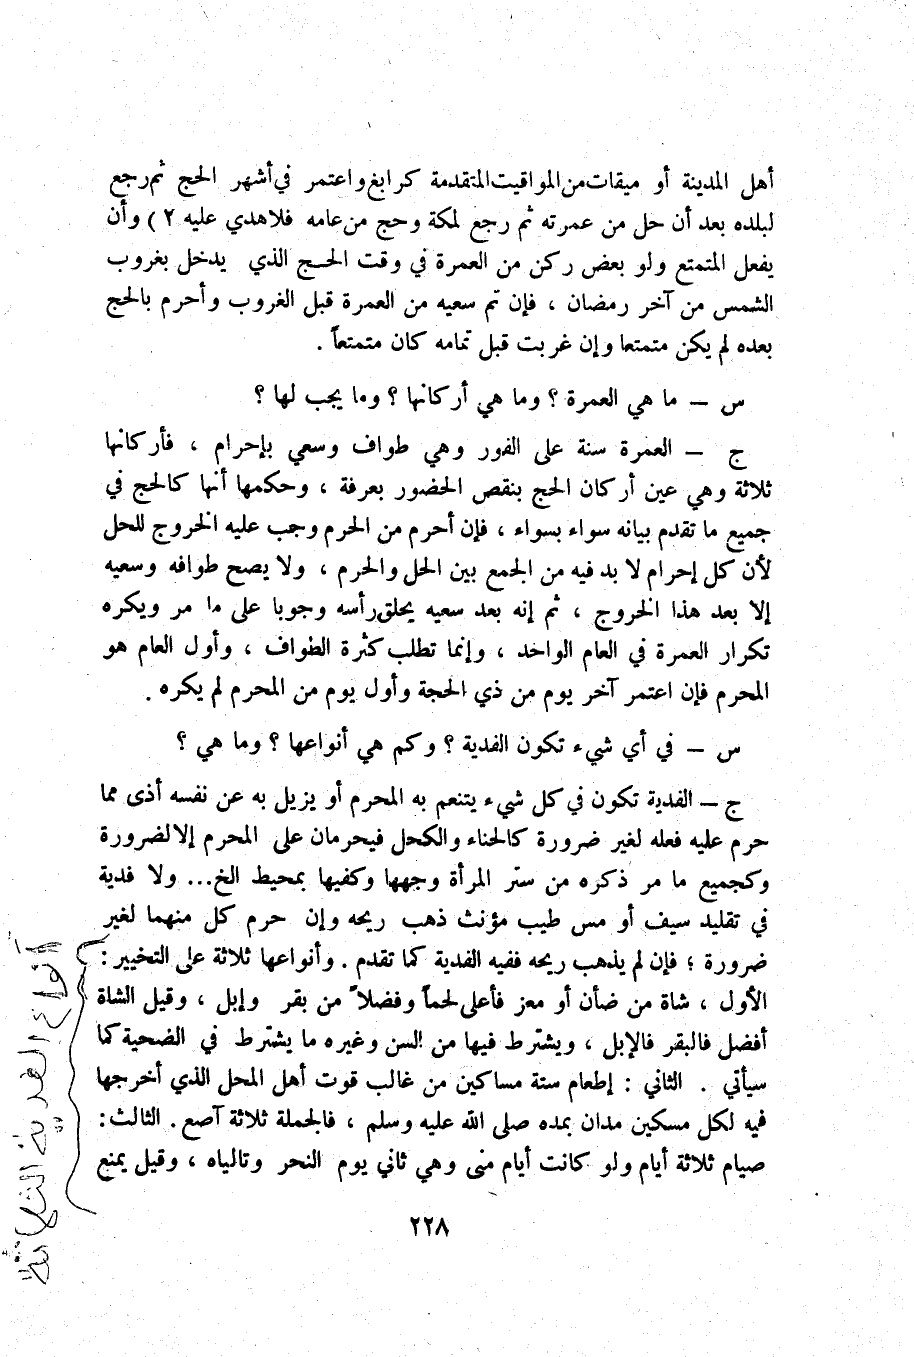 أهل المدينة أو ميقات من المواقيت المتقدمة كرابغ واعتمر في أشهر الحج ثم رجع
لبلده بعد أن حل من عمرته ثم رجع لمكة وحج من عامه فلا هدي عليه ٢ ) وأن
يفعل المتمتع ولو بعض ركن من العمرة في وقت الحج الذي يدخل بغروب
الشمس من آخر رمضان ، فإن تم سعيه من العمرة قبل الغروب وأحرم بالحج
بعده لم يكن متمتعا وإن غربت قبل تمامه كان متمتعاً .
س – ما هي العمرة ؟ وما هي أركانها ؟ وما يجب لها ؟
ج – العمرة سنة على الفور وهي طواف وسعي بإحرام ، فأركانها
ثلاثة وهي عين أركان الحج بنقص الحضور بعرفة ، وحكمها أنها كالحج في
جميع ما تقدم بيانه سواء بسواء ، فإن أحرم من الحرم وجب عليه الخروج للحل
لأن كل إحرام لا بد فيه من الجمع بين الحل والحرم ، ولا يصح طوافه وسعيه
إلا بعد هذا الخروج ، ثم إنه بعد سعيه يحلق رأسه وجوبا على ما مر ويكره
تكرار العمرة في العام الواحد ، وإنما تطلب كثرة الطواف ، وأول العام هو
المحرم فإن اعتمر آخر يوم من ذي الحجة وأول يوم من المحرم لم يكره .
س – في أي شيء تكون الفدية ؟ وكم هي أنواعها ؟ وما هي ؟
ج – الفدية تكون في كل شيء يتنعم به المحرم أو يزيل به عن نفسه أذى مما
حرم عليه فعله لغير ضرورة كالحناء والكحل فيحرمان على المحرم إلا لضرورة
وكجميع ما مر ذكره من ستر المرأة وجهها وكفيها بمحيط الخ... ولا فدية
في تقليد سيف أو مس طيب مؤنث ذهب ريحه وإن حرم كل منهما لغير
ضرورة ؛ فإن لم يذهب ريحه ففيه الفدية كما تقدم . وأنواعها ثلاثة على التخيير :
الأول ، شاة من ضأن أو معز فأعلى لحماً وفضلاً من بقر وإبل ، وقيل الشاة
أفضل فالبقر فالإبل ، ويشترط فيها من السن وغيره ما يشترط في الضحية كما
سيأتي . الثاني : إطعام ستة مساكين من غالب قوت أهل المحل الذي أخرجها
فيه لكل مسكين مدان بمده صلى الله عليه وسلم ، فالجملة ثلاثة آصع . الثالث :
صيام ثلاثة أيام ولو كانت أيام منى وهي ثاني يوم النحر وتالياه ، وقيل يمنع
٢٢٨
أنواع الفدية الثلاثة